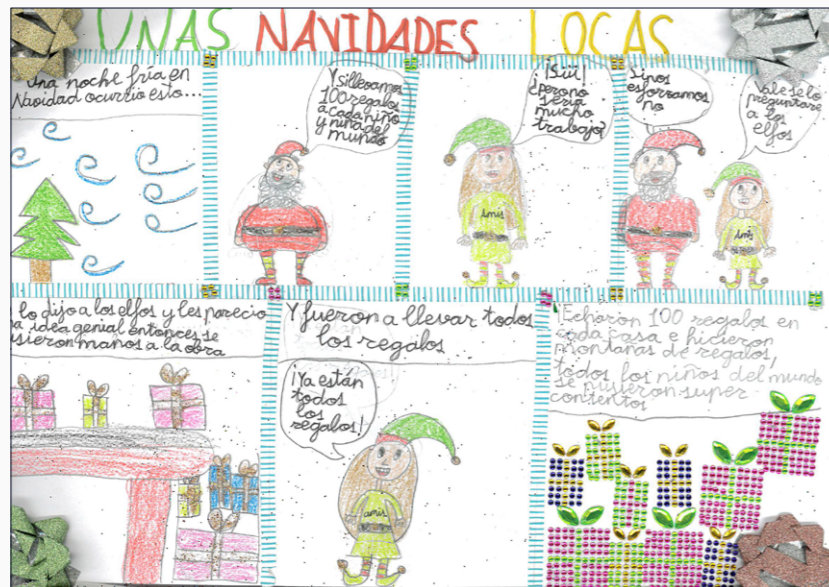 UNAS NAVIDADES LOCAS
Una noche fría en
Navidad ocurrio esto...
Y si llevamos
100 regalos
a cada niño
y niña del
mundo
¡Siii!
¿pero no
seria
mucho
trabajo?
Si nos
esforzamos
no
Vale se lo
preguntare
a los
elfos
Amis
Amis
lo dijo a los elfos y les parecio
idea genial entonces se
manos a la obra
Y fueron a llevar todos
los regalos
¡Ya están
todos
los
regalos!
amis
¡Echaron 100 regalos en
cada casa e hicieron
montañas de regalos,
todos los niños del mundo
se pusieron super
contentos